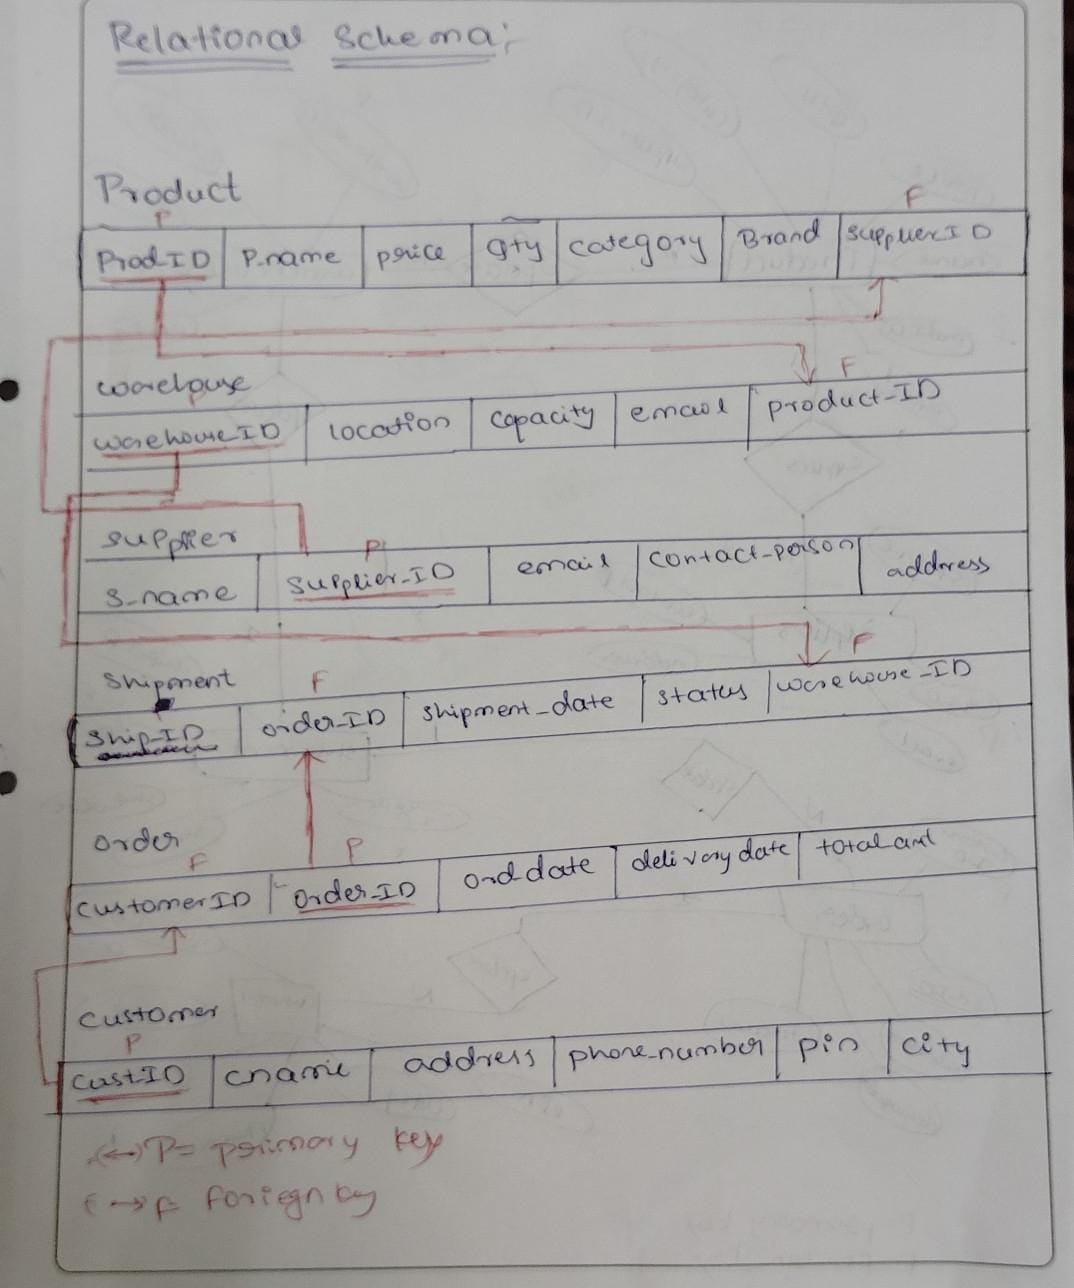 Relational Schema:
Product
P F
Prod_ID P.name price qty category Brand supplierID
warehouse
P F
warehouseID location capacity email product_ID
supplier
P
s_name supplier_ID email contact_person address
shipment F F
ship_ID order_ID shipment_date status warehouse_ID
order
F P
customerID order_ID ord date delivery date total amt
customer
P
custID cname address phone_number pin city
(↔) P= primary key
→ F foriegn ky